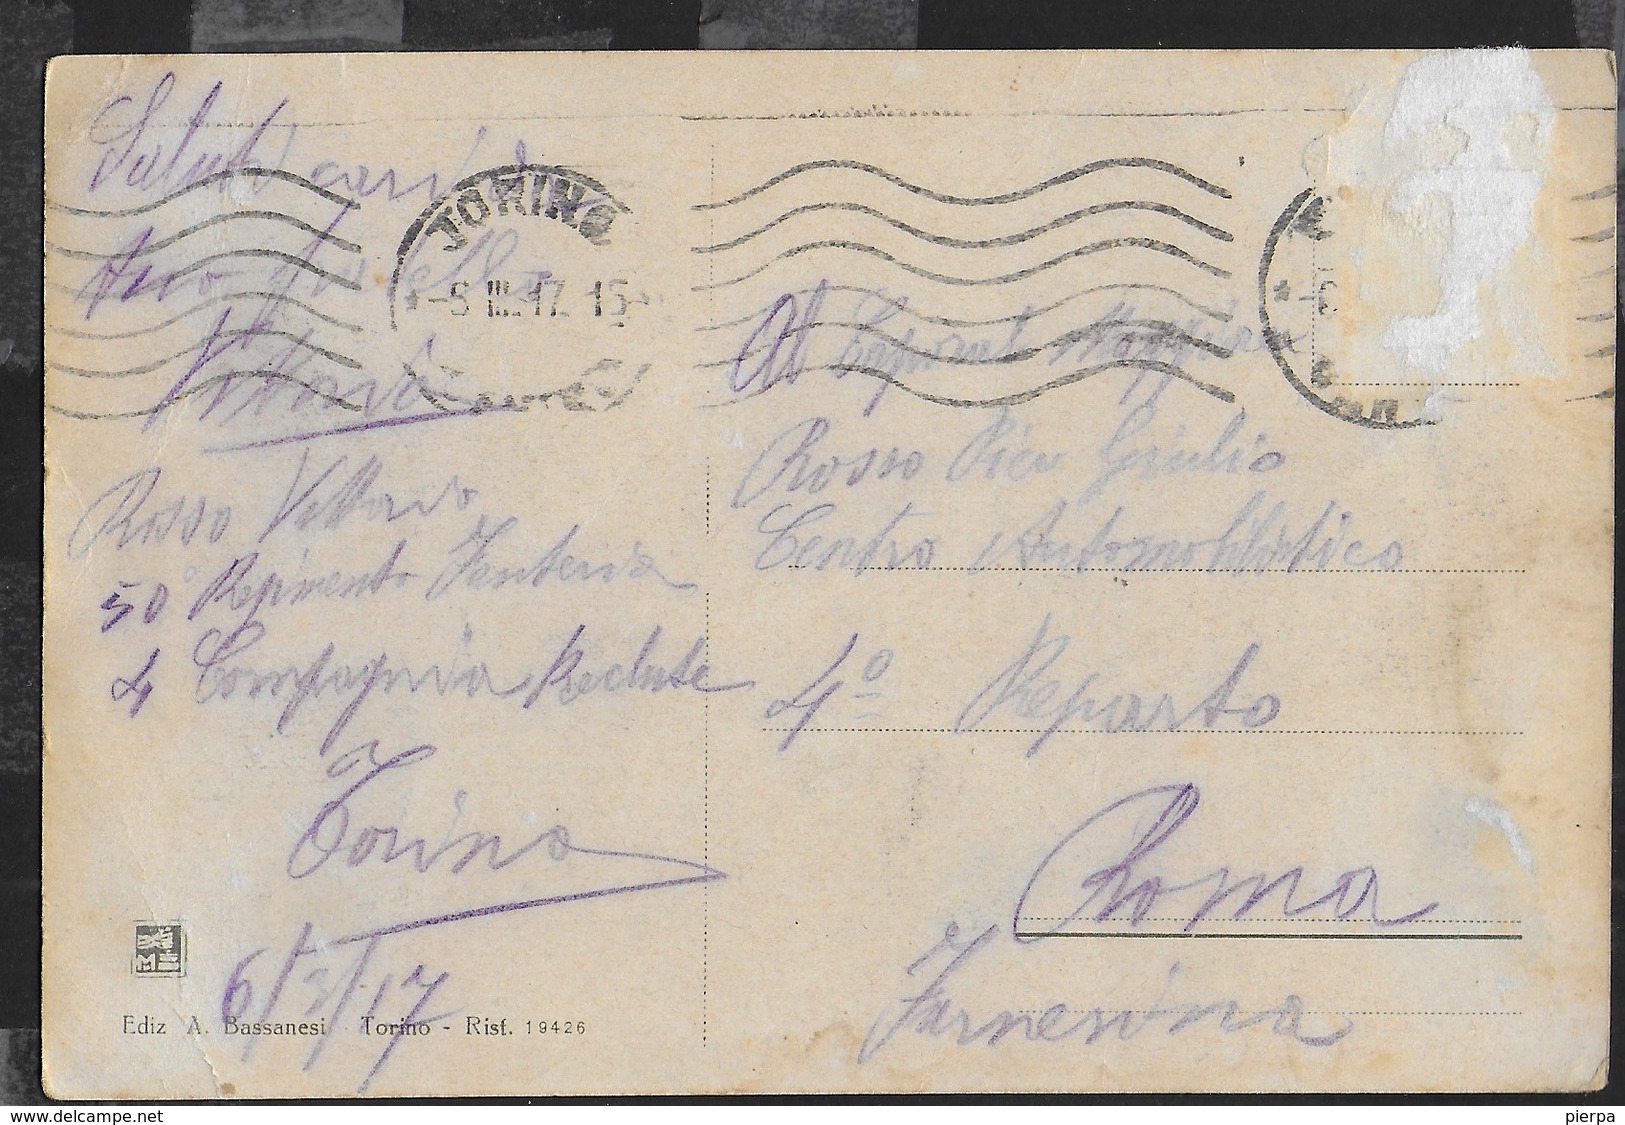 Saluti cari
tuo fratello
Vittorio
Rosso Vittorio
50° Regimento Fanteria
4 Compagnia Reclute
Torino
6/3/17
Ediz A. Bassanesi Torino - Rist. 19426
TORINO
-8 III.17. 15
Al Caporal Maggior
Rosso Pier Giulio
Centro Automobilistico
4° Reparto
Roma
Farnesina
www.delcampe.net
pierpa